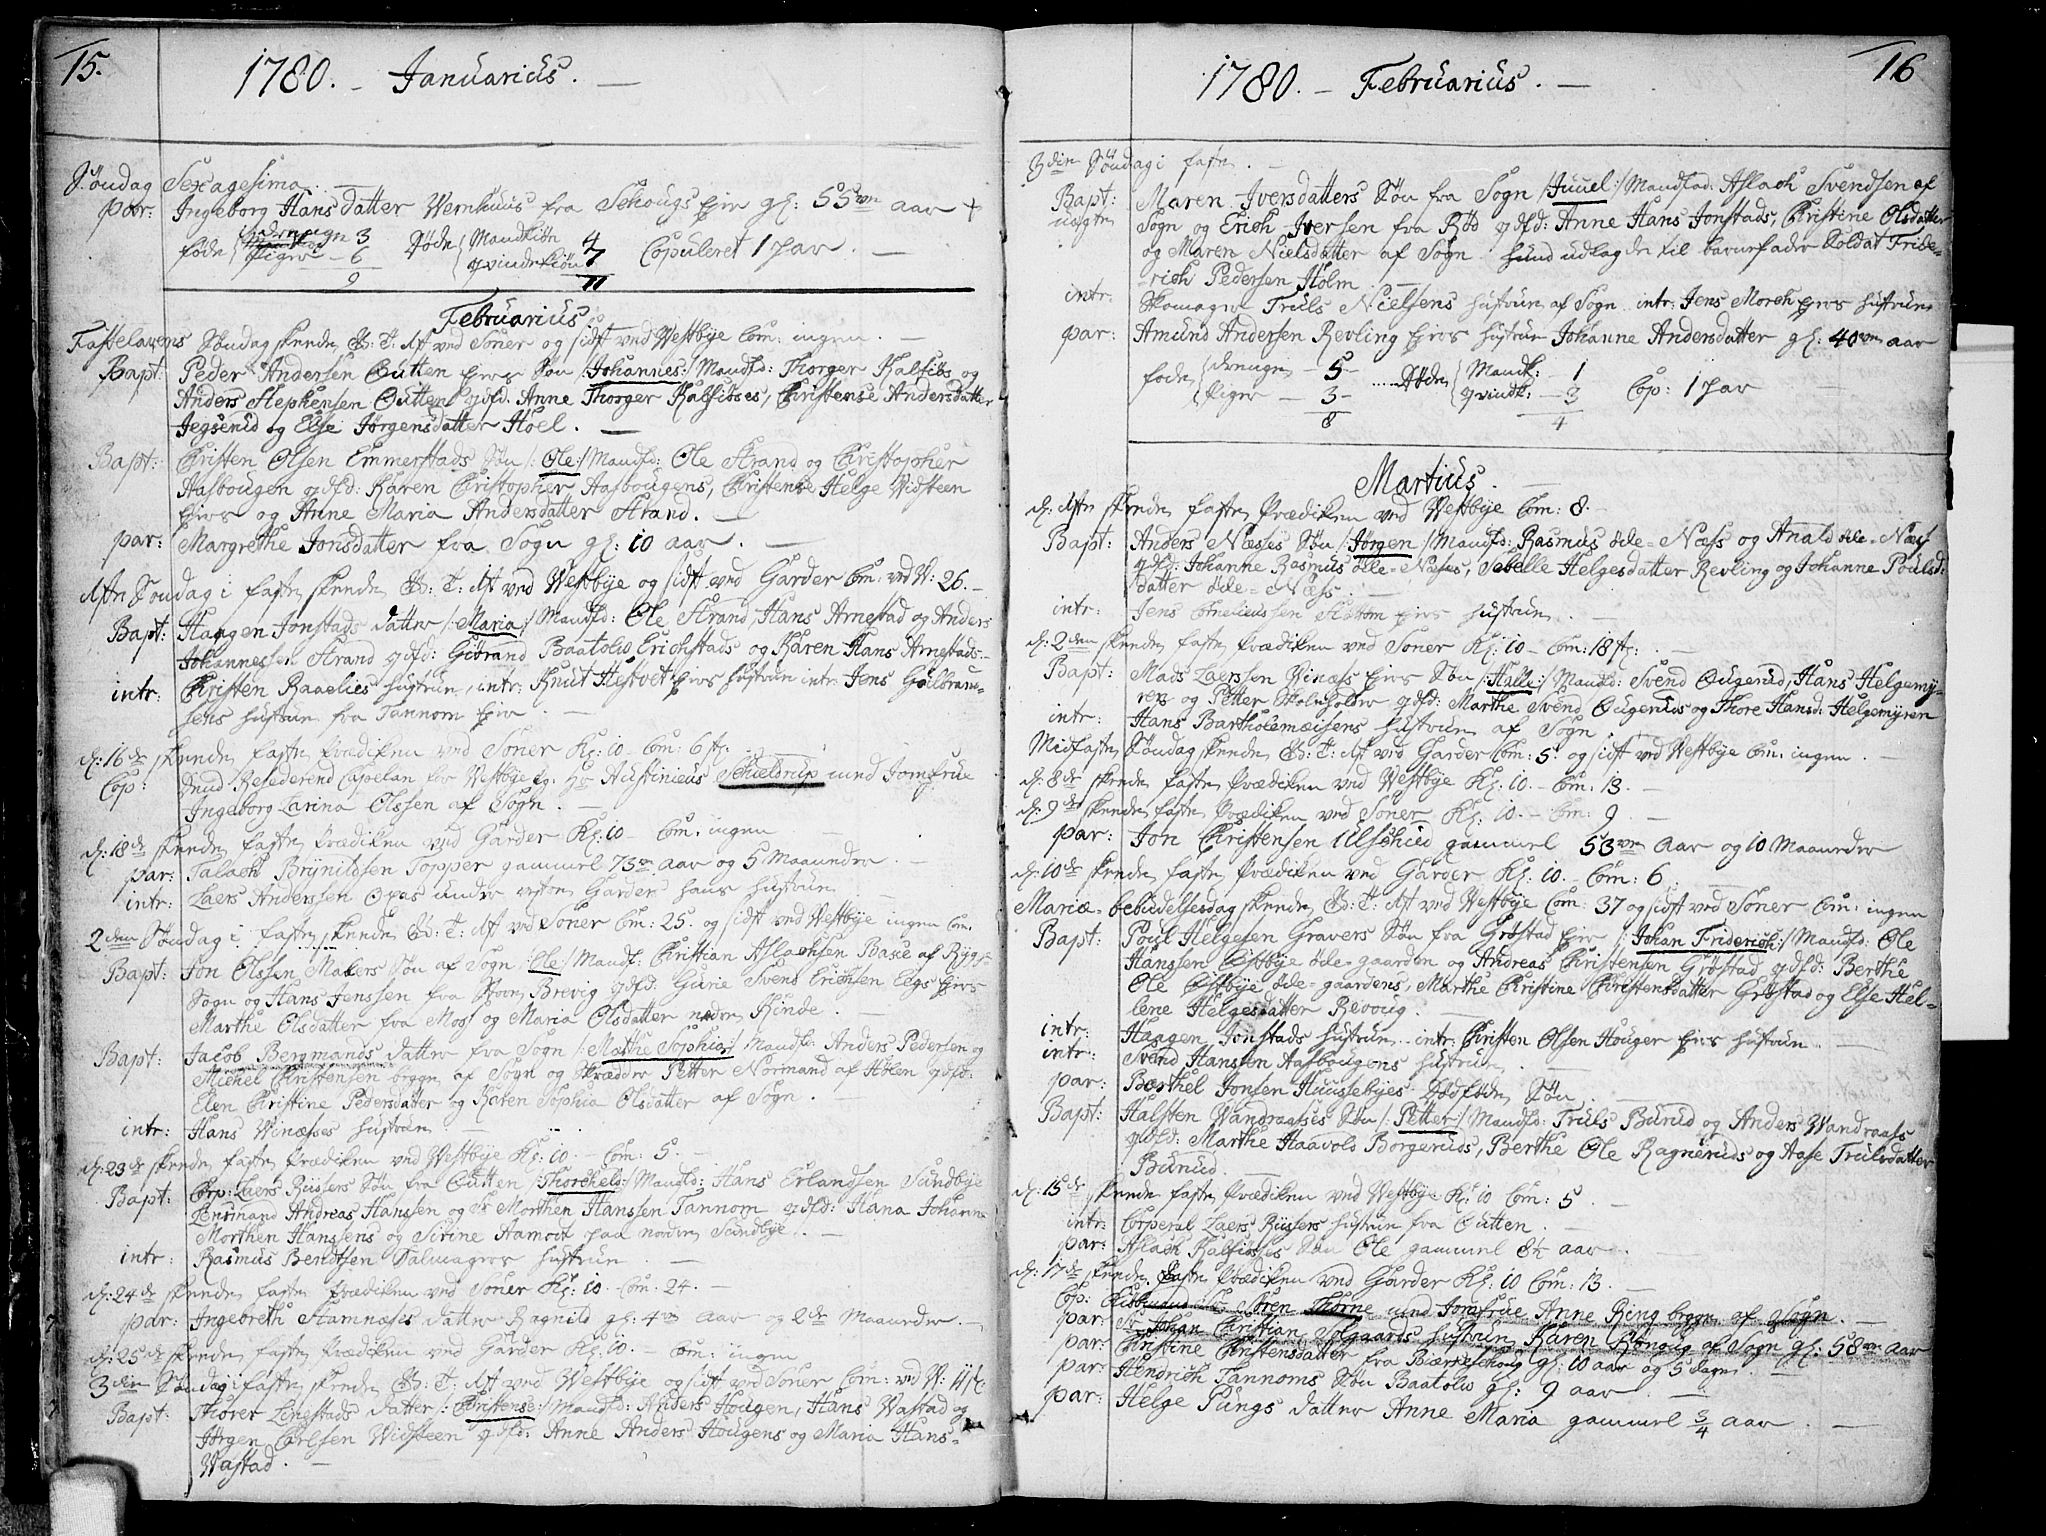 15.
1780. - Januarius. -
Søndag Sexagesima. -
par: Ingeborg Hans datter Wernhuus fra Schougs Eier gl: 55ve aar +
føde drenge 3 Døde Mandkiøn 4 Copuleret 1 par. -
Piger - 6 qvindekiøn 7
9 11
Februarius.
Fastelavens Søndag skeede G: T: Alt ved Soner og sidst ved Westbye Com: ingen. -
Bapt: Peder Andersen Outten Eies Søn /:Johannes:/ Mandfd: Thorger Kalsiøs og
Anders Stephensen Outten qdfd: Anne Thorger Kalsiøses, Christense Andersdatter
Jegserud og Else Jørgensdatter Hoel. -
Bapt: Christen Olsen Emmerstads Søn /:Ole:/ Mandfd: Ole Strand og Christopher
Aasbougen qdfd: Karen Christopher Aasbougens, Christense Helge Vidsteen
Eies og Anne Maria Andersdatter Strand. -
par: Margrethe Jonsdatter fra Sogn gl: 10 aar. -
1ste Søndag i faste skeede G: T: Alt ved Westbye og sidst ved Garder Com: ved W: 26. -
Bapt: Haagen Jonstads datter /:Maria:/ Mandfd: Ole Strand, Hans Arnestad og Anders
Johannessen Strand qdfd: Giørand Baatolis Erichstads og Karen Hans Arnestads. -
intr: Christen Raaelies hustrue, intr: Knut Hestvet Eies hustrue intr: Jens Gulbran-
sens hustrue fra Tannom Eie. -
d: 16de skeede faste Prædiken ved Soner Kl: 10 - Com: 6 st: -
Cop: Residerend Capelan for Westbye Hr Austinieus Schieldrup med Jomfrue
Ingeborg Larina Olssen af Sogn. -
d: 18de skeede faste Prædiken ved Garder Kl: 10 - Com: ingen -
par: Talach Brynildsen Topper gammel 73ve aar og 5 Maaneder. -
intr: Laers Anderssen Opas under Garder hans hustrue -
2den Søndag i faste skeede G: T: Alt ved Soner Com: 25. og sidst ved Westbye ingen Com.
Bapt: Jon Olssen Makers Søn af Sogn /:Ole:/ Mandf: Christian Aslachsen Basse af Rygge
Sogn og Hans Jenssen fra Brevig qdfd: Gurie Svens Erichsen Eegs Eies
Marthe Olsdatter fra Mos og Maria Olsdatter nedre Kinde. -
Bapt: Jacob Bergmands datter fra Sogn /:Mathie Sophia:/ Mandfd: Anders Pedersen og
Michel Christensen begge af Sogn og Skrædder Petter Normand af Hølen qdfd:
Elen Christine Pedersdatter og Karen Sophia Olsdatter af Sogn. -
intr: Hans Winæsses hustrue -
d: 23de skeede faste Prædiken ved Westbye Kl: 10. - Com: 5. -
Bapt: Corp: Laers Riisers Søn fra Outten /:Thorchels:/ Mandfd: Hans Erlandsen Sundbye
Lensmand Andreas Hanssen og Sr Morthen Hanssen Tannom qdfd: Hana Johanne
Morthen Hanssens og Sirine Aamodt paa nedre Sundbye. -
intr: Rasmus Bendtsen Salmagers hustrue. -
d: 24de skeede faste Prædiken ved Soner Kl: 10. - Com: 24. -
par: Ingebreth Stamnæses datter Ragnild gl: 4ve aar og 2de Maaneder. -
d: 25de skeede faste Prædiken ved Garder Kl: 10. - Com: ingen
3die Søndag i faste skeede G: T: Alt ved Westbye og sidst ved Soner Com: ved W: 11 st:
Bapt: Thorer Linestads datter /:Christense:/ Mandfd: Anders Hougen, Hans Wastad og
Jørgen Carlsen Widsteen qdfd: Anne Anders Hougens og Maria Hans
Wastad. -
16
1780. - Februarius. -
3die Søndag i faste. -
Bapt: uægte Maren Iversdatters Søn fra Sogn /:Juuel:/ Mandfad: Aslach Svendsen af
Sogn og Erich Iversen fra Rød qdfd: Anne Hans Jonstads, Christine Olsdatter
og Maren Nielsdatter af Sogn. hund udlagde til barnefader Soldat Fride-
rich Pedersen Holm. -
intr: Skomager Truls Nielsens hustrue af Sogn intr: Jens Morch Eies hustrue
par: Amund Andersen Revling Eies hustrue Johanne Andersdatter gl: 40ve aar
føde drenge - 5 - Døde Mandk: - 1 Cop: 1 par -
Piger - 3 - qvindk: - 3
8 4
Martius. -
d: 1ste skeede faste Prædiken ved Westbye Com: 8. -
Bapt: Anders Næsses Søn /:Jørgen:/ Mandfd: Rasmus øde-Næss og Anald øde-Næss
qdfd: Johanne Rasmus øde-Næses, Sebelle Helgesdatter Revling og Johanne Pouls-
datter øde-Næss. -
intr: Jens Corneliussen Strøm Eies hustrue. -
d: 2den skeede faste Prædiken ved Soner Kl: 10 - Com: 18 st: -
Bapt: Mads Laerssen Winæss Eies Søn /:Halle:/ Mandfd: Svend Ougerud, Hans Helgemy-
ren og Petter Skoleholder qdfd: Marthe Svend Ougeruds og Thore Hansd: Helgemyren
intr: Hans Bartholemæisens hustrue af Sogn. -
Midfaste Søndag skeede G: T: Alt ved Garder Com: 5. og sidst ved Westbye Com: ingen. -
d: 8de skeede faste Prædiken ved Westbye Kl: 10. - Com: 13. -
d: 9de skeede faste Prædiken ved Soner Kl: 10. - Com: 9. -
par: Jon Christensen Ulschud gammel 53ve aar og 10 Maaneder
d: 10de skeede faste Prædiken ved Garder Kl: 10. - Com: 6. -
Mariæ-bebudelsesdag skeede G: T: Alt ved Westbye Com: 37 og sidst ved Soner Com: ingen
Bapt: Poul Helgesen Gravers Søn fra Grøstad Eie /:Johan Friderich:/ Mandfd: Ole
Hanssen Østbye øde-gaarden og Andreas Christensen Grøstad qdfd: Berthe
Ole Østbye øde-gaardens, Marthe Christine Christensdatter Grøstad og Else Hel-
lene Helgesdatter Revoug. -
intr: Haagen Jonstads hustrue. intr: Christen Olsen Houger Eies hustrue -
intr: Svend Hanssen Aasbougens hustrue. -
par: Berthel Jonsen Huussebyes dødføde Søn. -
Bapt: Halsten Wandraasses Søn /:Petter:/ Mandfd: Truls Burud og Anders Wandraass
qdfd: Marthe Haavold Borgeruds, Berthe Ole Ragneruds og Aase Trulsdatter
Burud -
d: 15de skeede faste Prædiken ved Westbye Kl: 10 Com: 5 -
intr: Corperal Laers Riisers hustrue fra Outten. -
par: Aslach Kalsiøses Søn Ole gammel 8½ aar. -
d: 17de skeede faste Prædiken ved Garder Kl: 10 Com: 13. -
Cop: Kiøbmand Sr Søren Thorne med Jomfrue Anne Ring begge af Sogn. -
par: Sr Johan Christian Volgaards hustrue Karen af Sogn gl: 58ve aar
par: Christine Christensdatter fra Bierreschoug gl: 10 aar og 5 dage. -
par: Hendrich Tannoms Søn Baatolis gl: 9 aar. -
par: Helge Pungs datter Anne Maria gammel ¾ aar. -